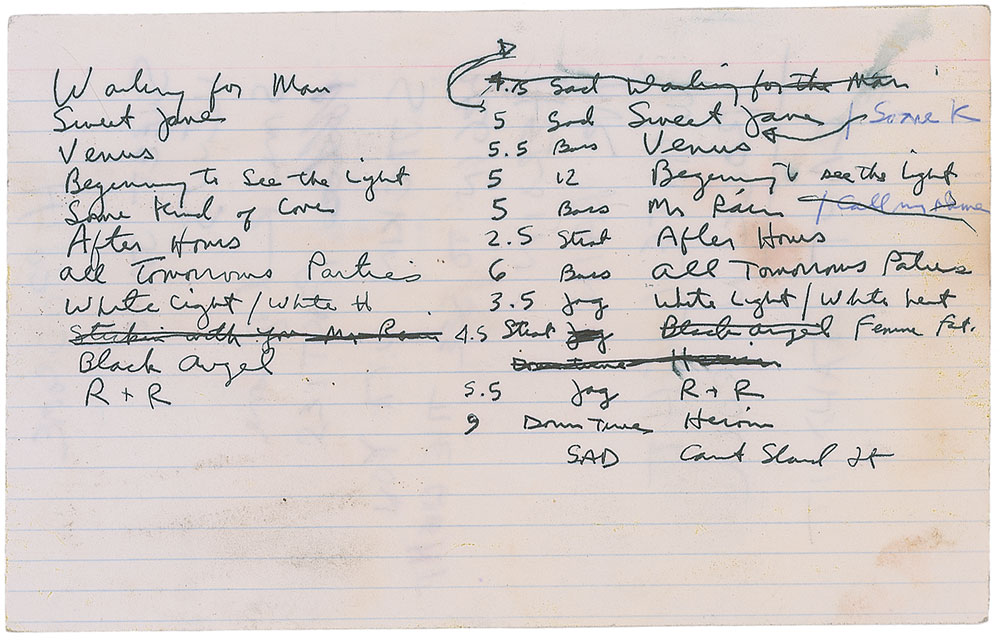 Waiting for Man 4.15 Sad Waiting for the Man
Sweet Jane 5 Sad Sweet Jane / Some K
Venus 5.5 Bass Venus
Beginning to See the Light 5 12 Beginning to see the light
Some Kind of Love 5 Bass Mr Rain / Call my Name
After Hours 2.5 Strat After Hours
All Tomorrows Parties 6 Bass All Tomorrows Paties
White Light / White H 3.5 Jag White Light / White heat
Stickin with you Mr Rain 4.5 Strat Jag Black Angel Femme Fat.
Black Angel Downtune Heroin
R + R 5.5 Jag R + R
9 Down Tune Heroin
SAD Cant Stand It